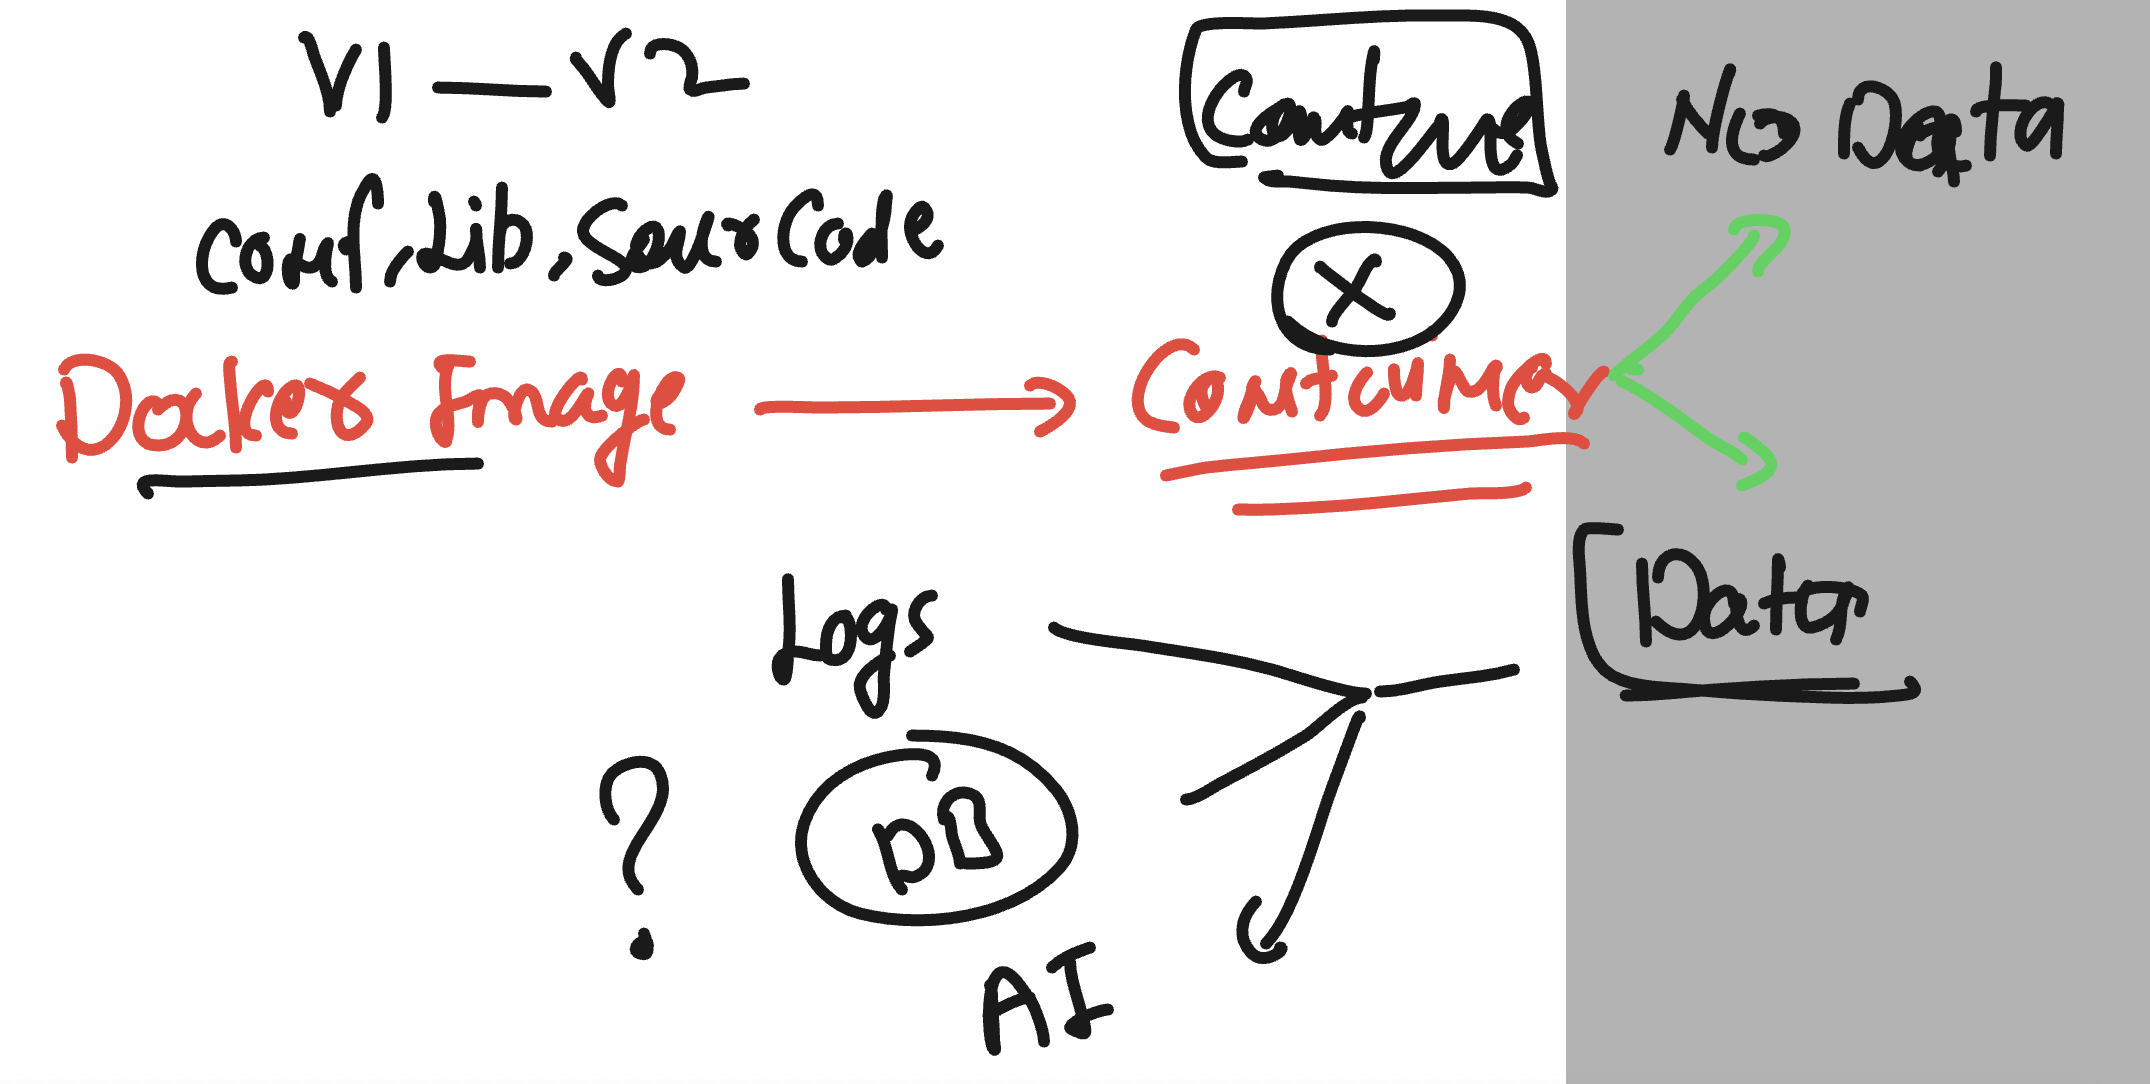 V1 — V2
Conf, Lib, Sour Code
Docker Image → Container
Container
X
No Data
Data
Logs
?
DB
AI